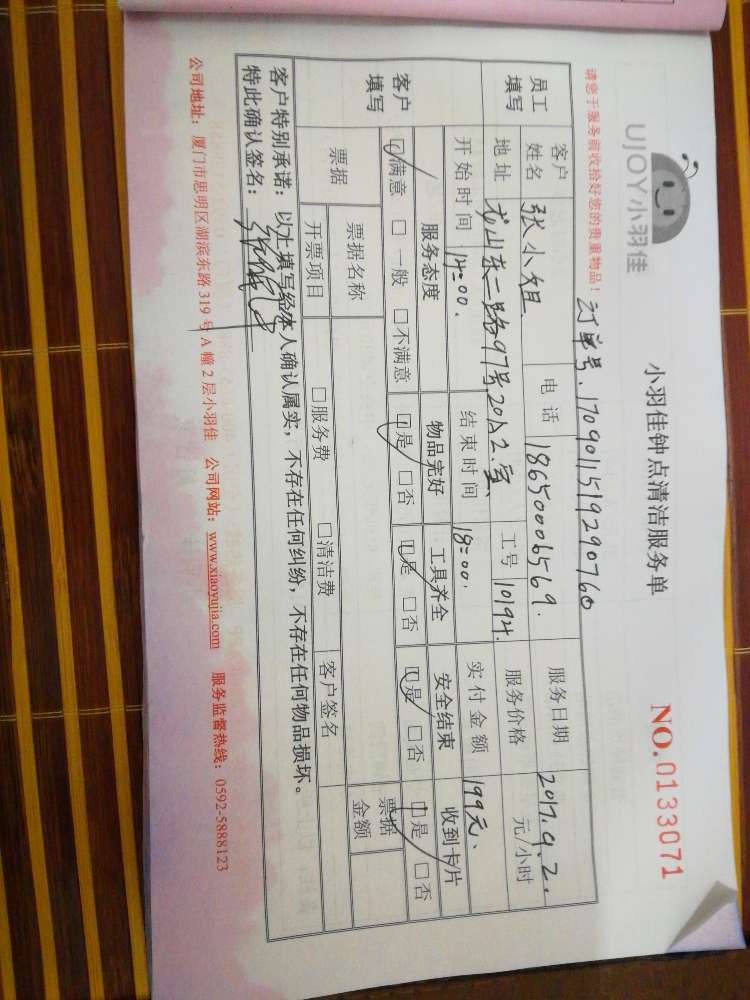 UJOY小羽佳
小羽佳钟点清洁服务单
NO.0133071
请您于服务前收拾好您的贵重物品！
订单号.1709011519290760
员工填写
客户姓名 张小姐 电话 18650006569. 服务日期 2017.9.2.
地址 龙山东二路97号2012.室 工号 10194. 服务价格 元/小时
开始时间 14=00. 结束时间 18=00. 实付金额 199元、
客户填写
服务态度 物品完好 工具齐全 安全结束 收到卡片
☑满意 □一般 □不满意 ☑是 □否 ☑是 □否 ☑是 □否 ☑是 □否
票据 票据名称 票据金额
开票项目 □服务费 □清洁费 客户签名
客户特别承诺：以上填写经本人确认属实，不存在任何纠纷，不存在任何物品损坏。
特此确认签名：
公司地址：厦门市思明区湖滨东路319号A幢2层小羽佳 公司网站：www.xiaoyujia.com 服务监督热线：0592-5888123